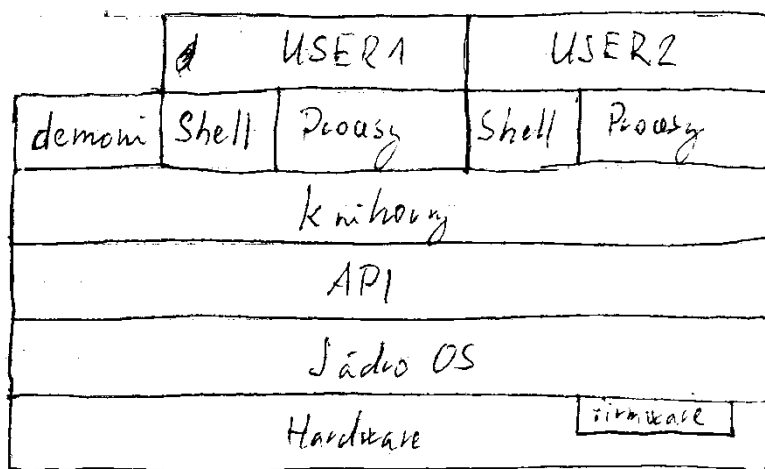 USER1 USER2
demoni Shell Procesy Shell Procesy
knihovny
API
Jádro OS
firmware
Hardware